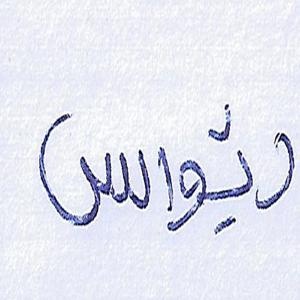 ديواس